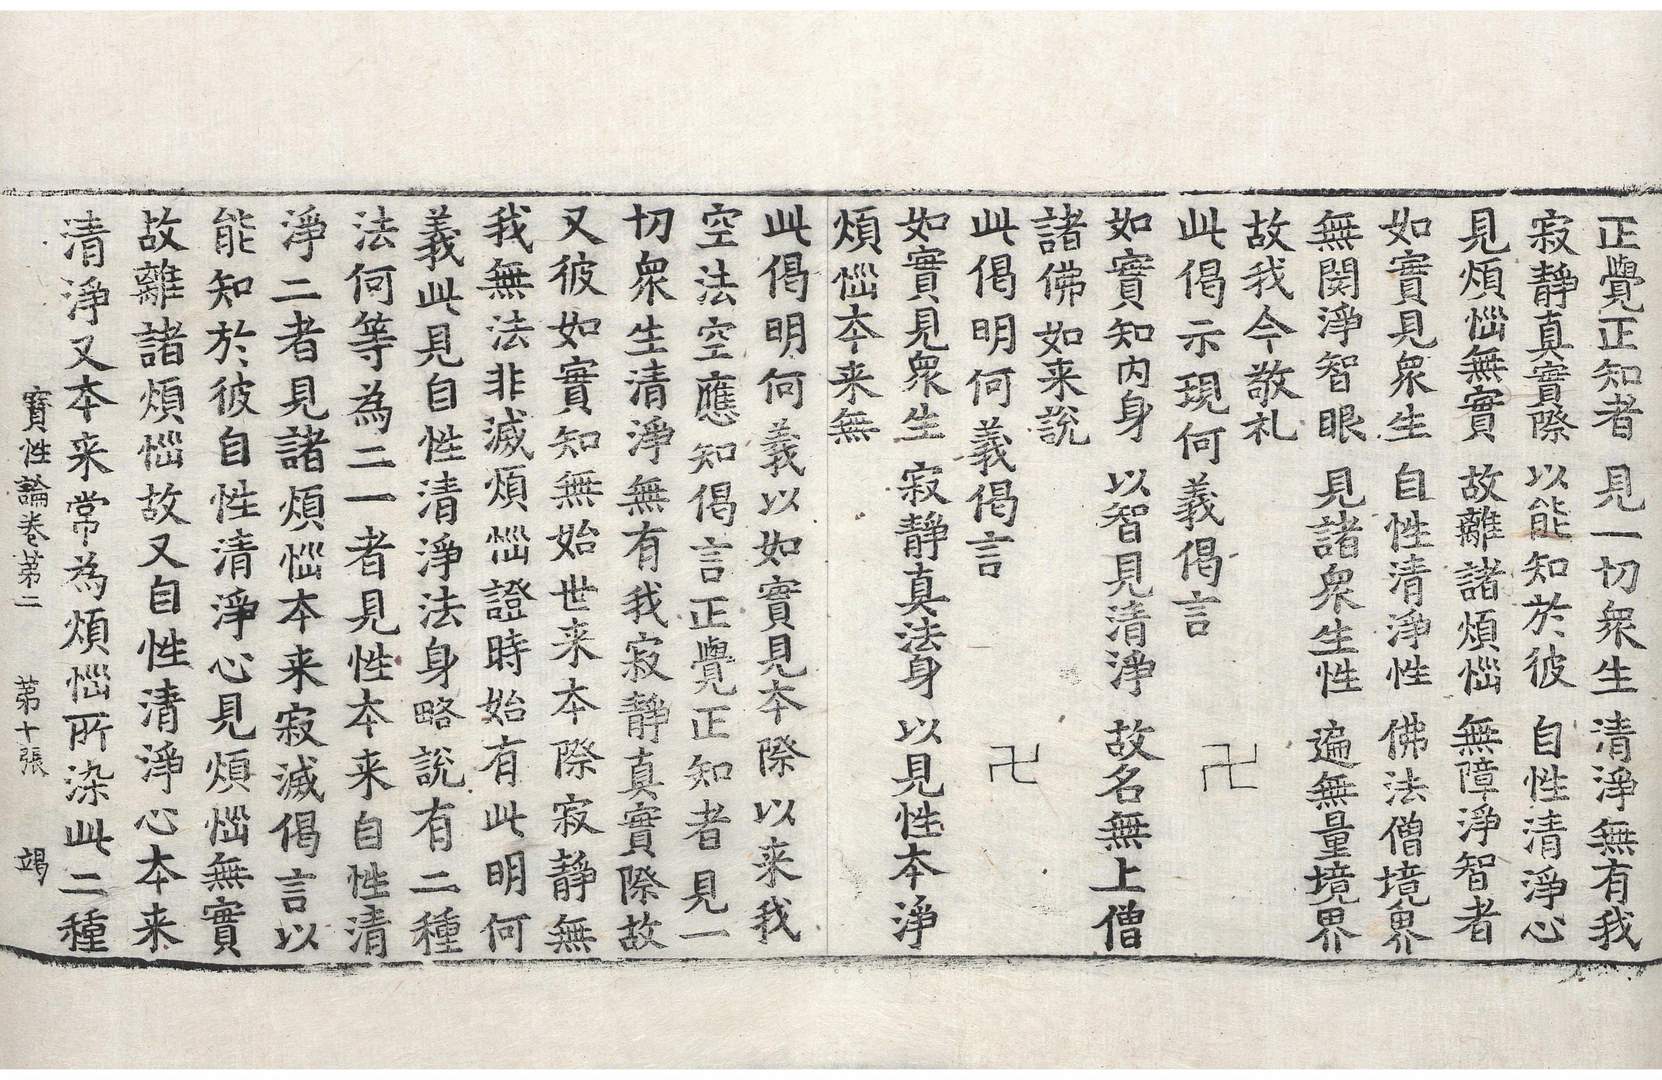 正覺正知者 見一切衆生 清淨無有我
寂靜真實際 以能知於彼 自性清淨心
見煩惱無實 故離諸煩惱 無障淨智者
如實見衆生 自性清淨性 佛法僧境界
無閡淨智眼 見諸衆生性 遍無量境界
故我今敬礼
此偈示現何義偈言 卍
如實知內身 以智見清淨 故名無上僧
諸佛如来說
此偈明何義偈言 卍
如實見衆生 寂靜真法身 以見性本淨
煩惱本来無
此偈明何義以如實見本際以来我
空法空應知偈言正覺正知者見一
切衆生清淨無有我寂靜真實際故
又彼如實知無始世来本際寂靜無
我無法非滅煩惱證時始有此明何
義此見自性清淨法身略說有二種
法何等為二一者見性本来自性清
淨二者見諸煩惱本来寂滅偈言以
能知於彼自性清淨心見煩惱無實
故離諸煩惱故又自性清淨心本来
清淨又本来常為煩惱所染此二種
寶性論卷第二 第十張 竭